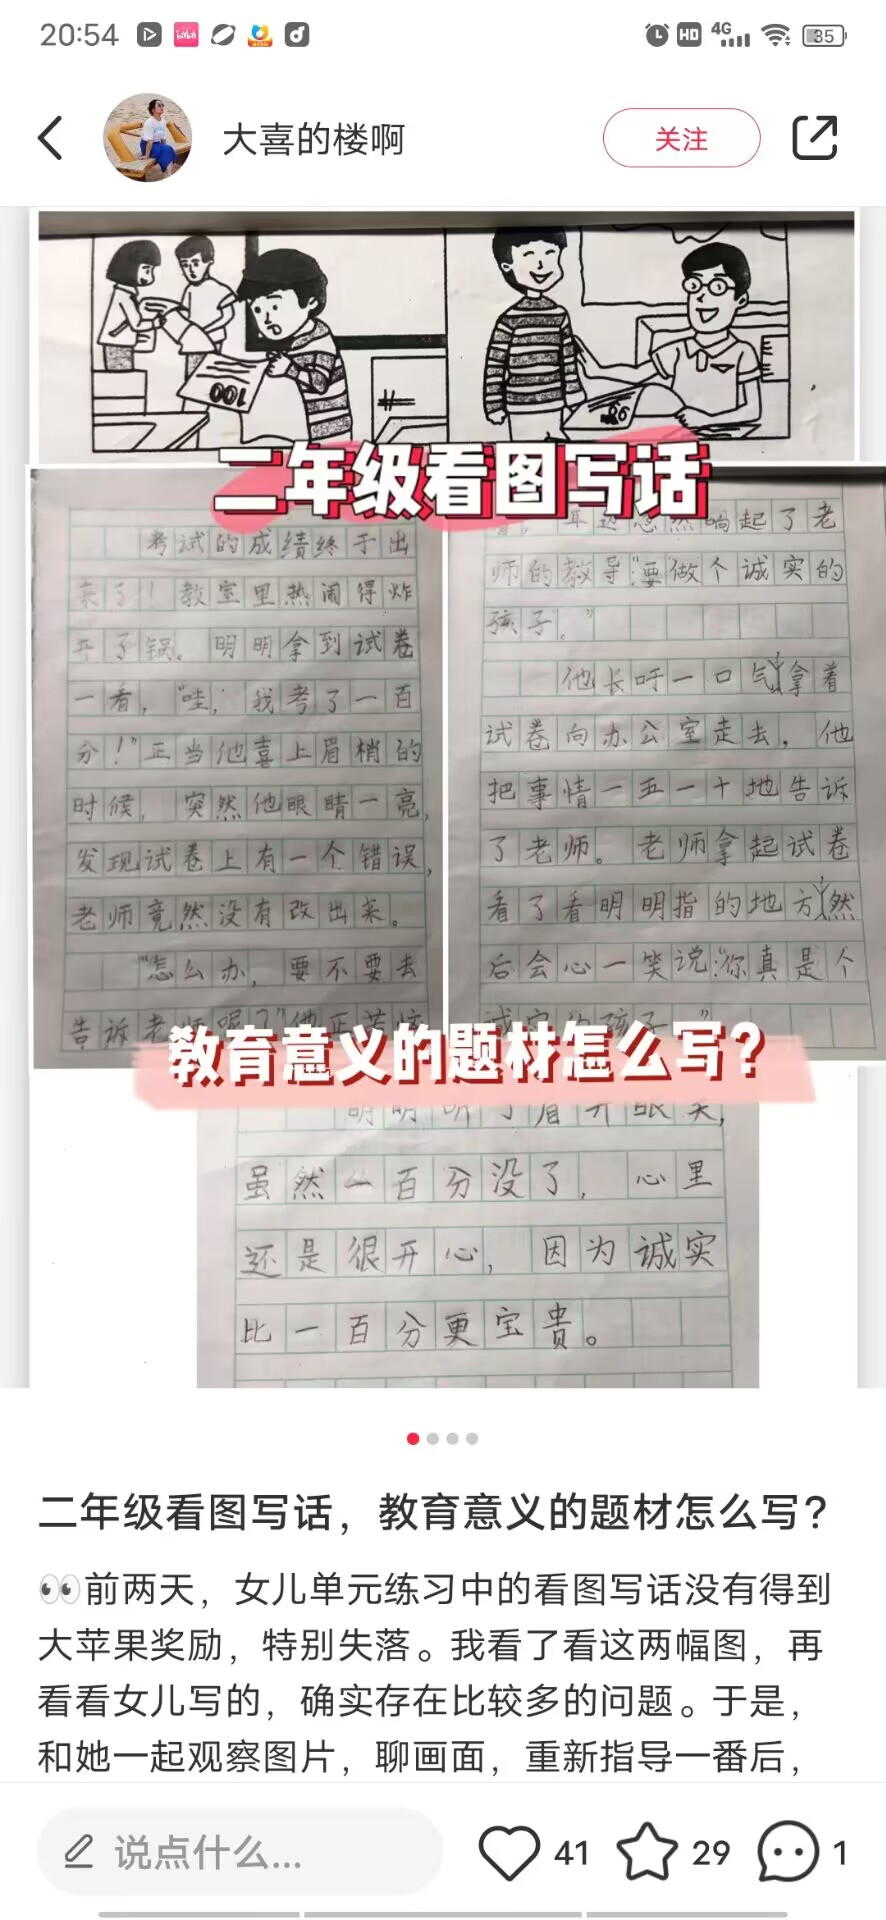 20:54
HD
4G
35
大喜的楼啊
关注
100
98
二年级看图写话
考试的成绩终于出
来了！教室里热闹得炸
开了锅。明明拿到试卷
一看，“哇，我考了一百
分！”正当他喜上眉梢的
时候，突然他眼睛一亮，
发现试卷上有一个错误，
老师竟然没有改出来。
“怎么办，要不要去
告诉老师呢？”他正苦恼
耳边忽然响起了老
师的教导：“要做个诚实的
孩子。”
他长吁一口气，拿着
试卷向办公室走去，他
把事情一五一十地告诉
了老师。老师拿起试卷
看了看明明指的地方，然
后会心一笑说：“你真是个
诚实的孩子。”
教育意义的题材怎么写？
明明听了眉开眼笑，
虽然一百分没了，心里
还是很开心，因为诚实
比一百分更宝贵。
二年级看图写话，教育意义的题材怎么写？
👀前两天，女儿单元练习中的看图写话没有得到
大苹果奖励，特别失落。我看了看这两幅图，再
看看女儿写的，确实存在比较多的问题。于是，
和她一起观察图片，聊画面，重新指导一番后，
说点什么...
41
29
1